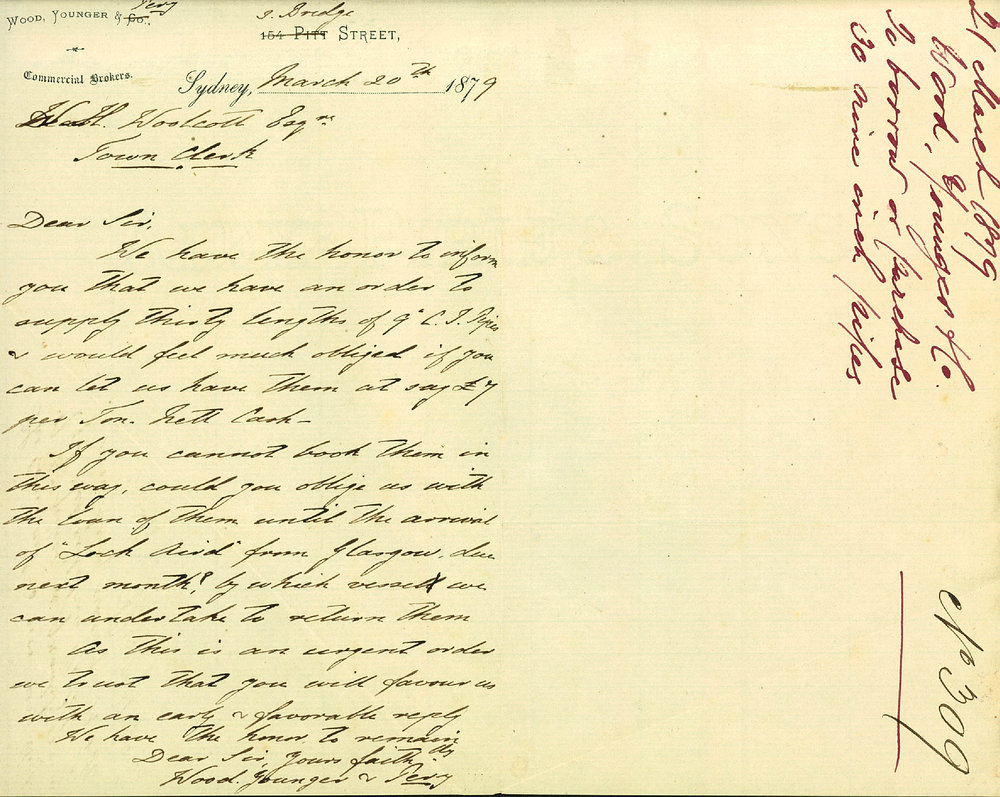 WOOD, YOUNGER & Co. Pery
3. Bridge
154 PITT STREET,
Commercial Brokers.
Sydney, March 20th 1879
Woolcott Esqre
Town Clerk
Dear Sir,
We have the honor to inform
you that we have an order to
supply thirty lengths of 9" C. I. Pipes
& would feel much obliged if you
can let us have them at say £7
per Ton. Nett Cash –
If you cannot book them in
this way, could you oblige us with
the loan of them until the arrival
of "Loch Aird" from Glasgow, due
next month, by which vessel we
can undertake to return them
As this is an urgent order
we trust that you will favour us
with an early & favorable reply
We have the honor to remain
Dear Sir, Yours faithlly
Wood. Younger & Pery
21 March 1879
Wood, Younger & Co.
To borrow or purchase
30 nine inch pipes
No 309